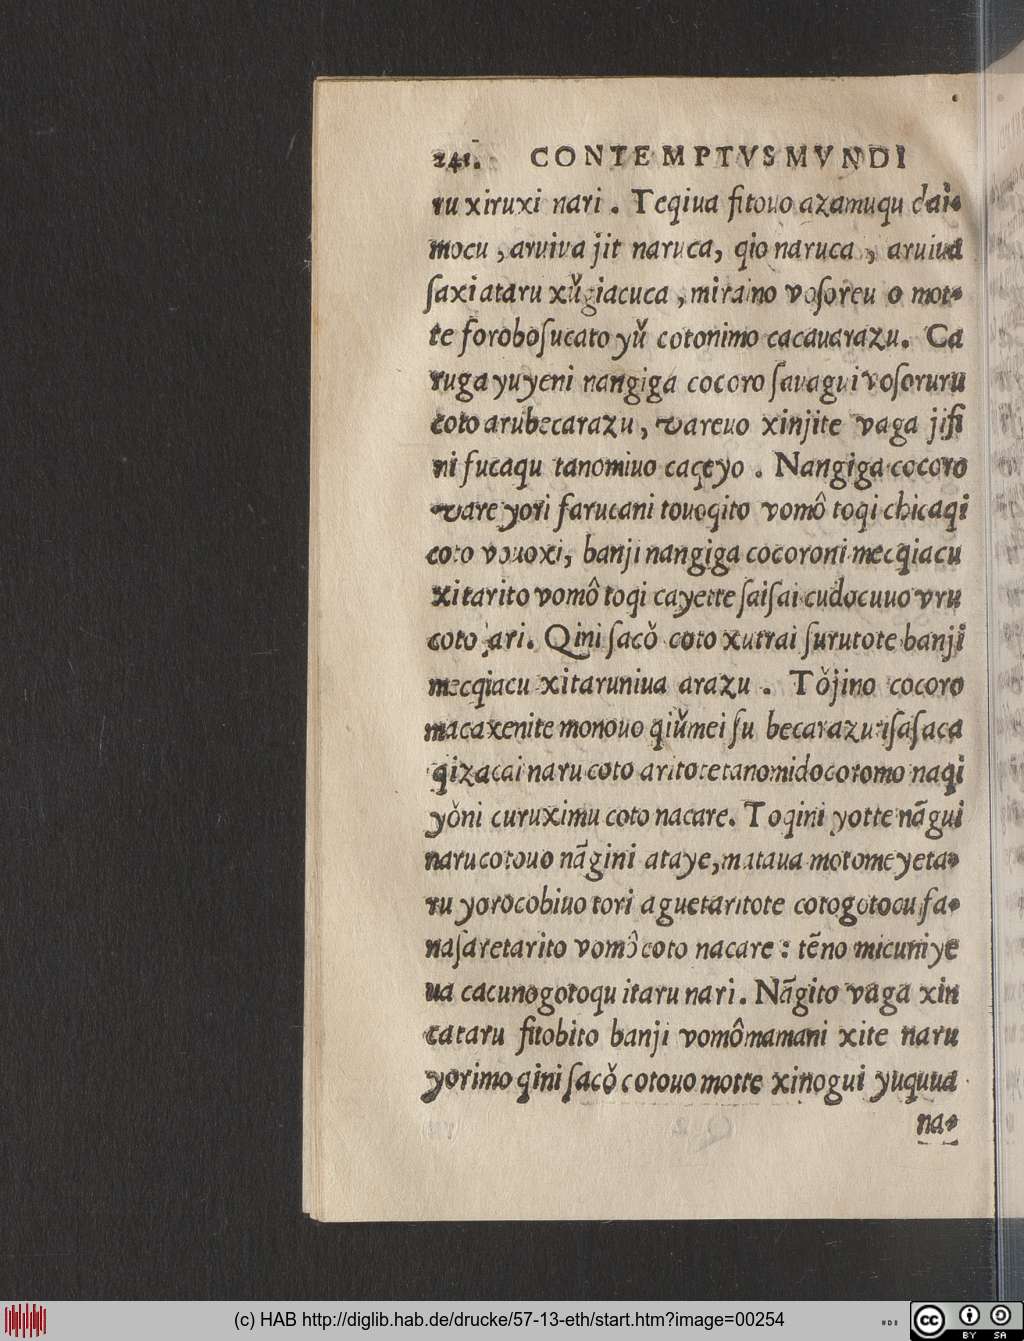 241. CONTEMPTVS MVNDI
ru xiruxi nari. Teqiua fitouo azamuqu dai-
mocu, aruiua jit naruca, qio naruca, aruiua
ſaxiataru xŭgiacuca, miraino voſoreu o mot-
te foroboſucato yŭ cotonimo cacauarazu. Ca
ruga yuyeni nangiga cocoro ſauagui voſoruru
coto arubecarazu, vareuo xinjite vaga jifi
ni fucaqu tanomiuo caqeyo. Nangiga cocoro
vare yori farucani touoqito vomô toqi chicaqi
coto vouoxi, banji nangiga cocoroni mecqiacu
xitarito vomô toqi cayette ſaiſai cudocuuo vru
coto ari. Qini ſacǒ coto xuttai ſurutote banji
mecqiacu xitaruniua arazu. Tǒjino cocoro
macaxenite monouo qiŭmei ſu becarazu: ſaſaca
qizacai naru coto aritote tanomidocoromo naqi
yǒni curuximu coto nacare. Toqini yotte nãgui
narucotouo nãgini ataye, mataua motomeyeta-
ru yorocobiuo tori aguetaritote cotogotocu fa-
naſaretarito vomô coto nacare: tẽno micuniye
ua cacunogotoqu itaru nari. Nãgito vaga xin
cataru fitobito banji vomômamani xite naru
yorimo qini ſacǒ cotouo motte xinogui yuquua
na-
(c) HAB http://diglib.hab.de/drucke/57-13-eth/start.htm?image=00254
cc BY SA